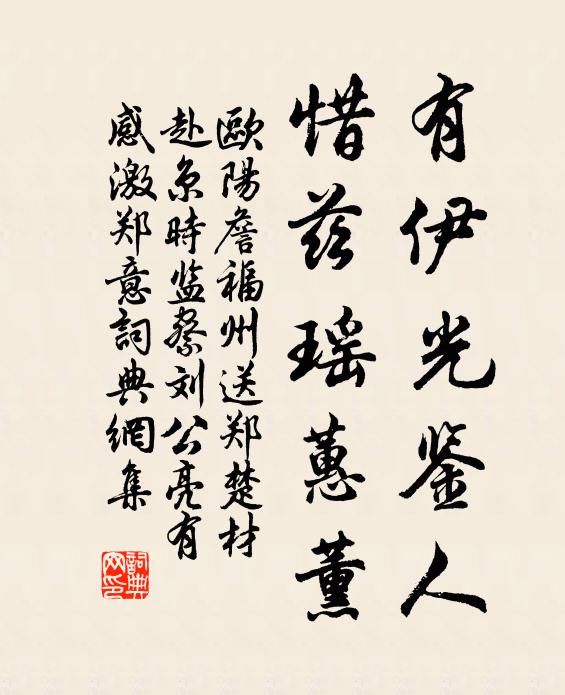 有伊光鉴人
惜兹瑶蕙薰
歐陽詹福州送郑楚材
赴京時监察刘公亮有
感激郑意詞典網集
詞典网印